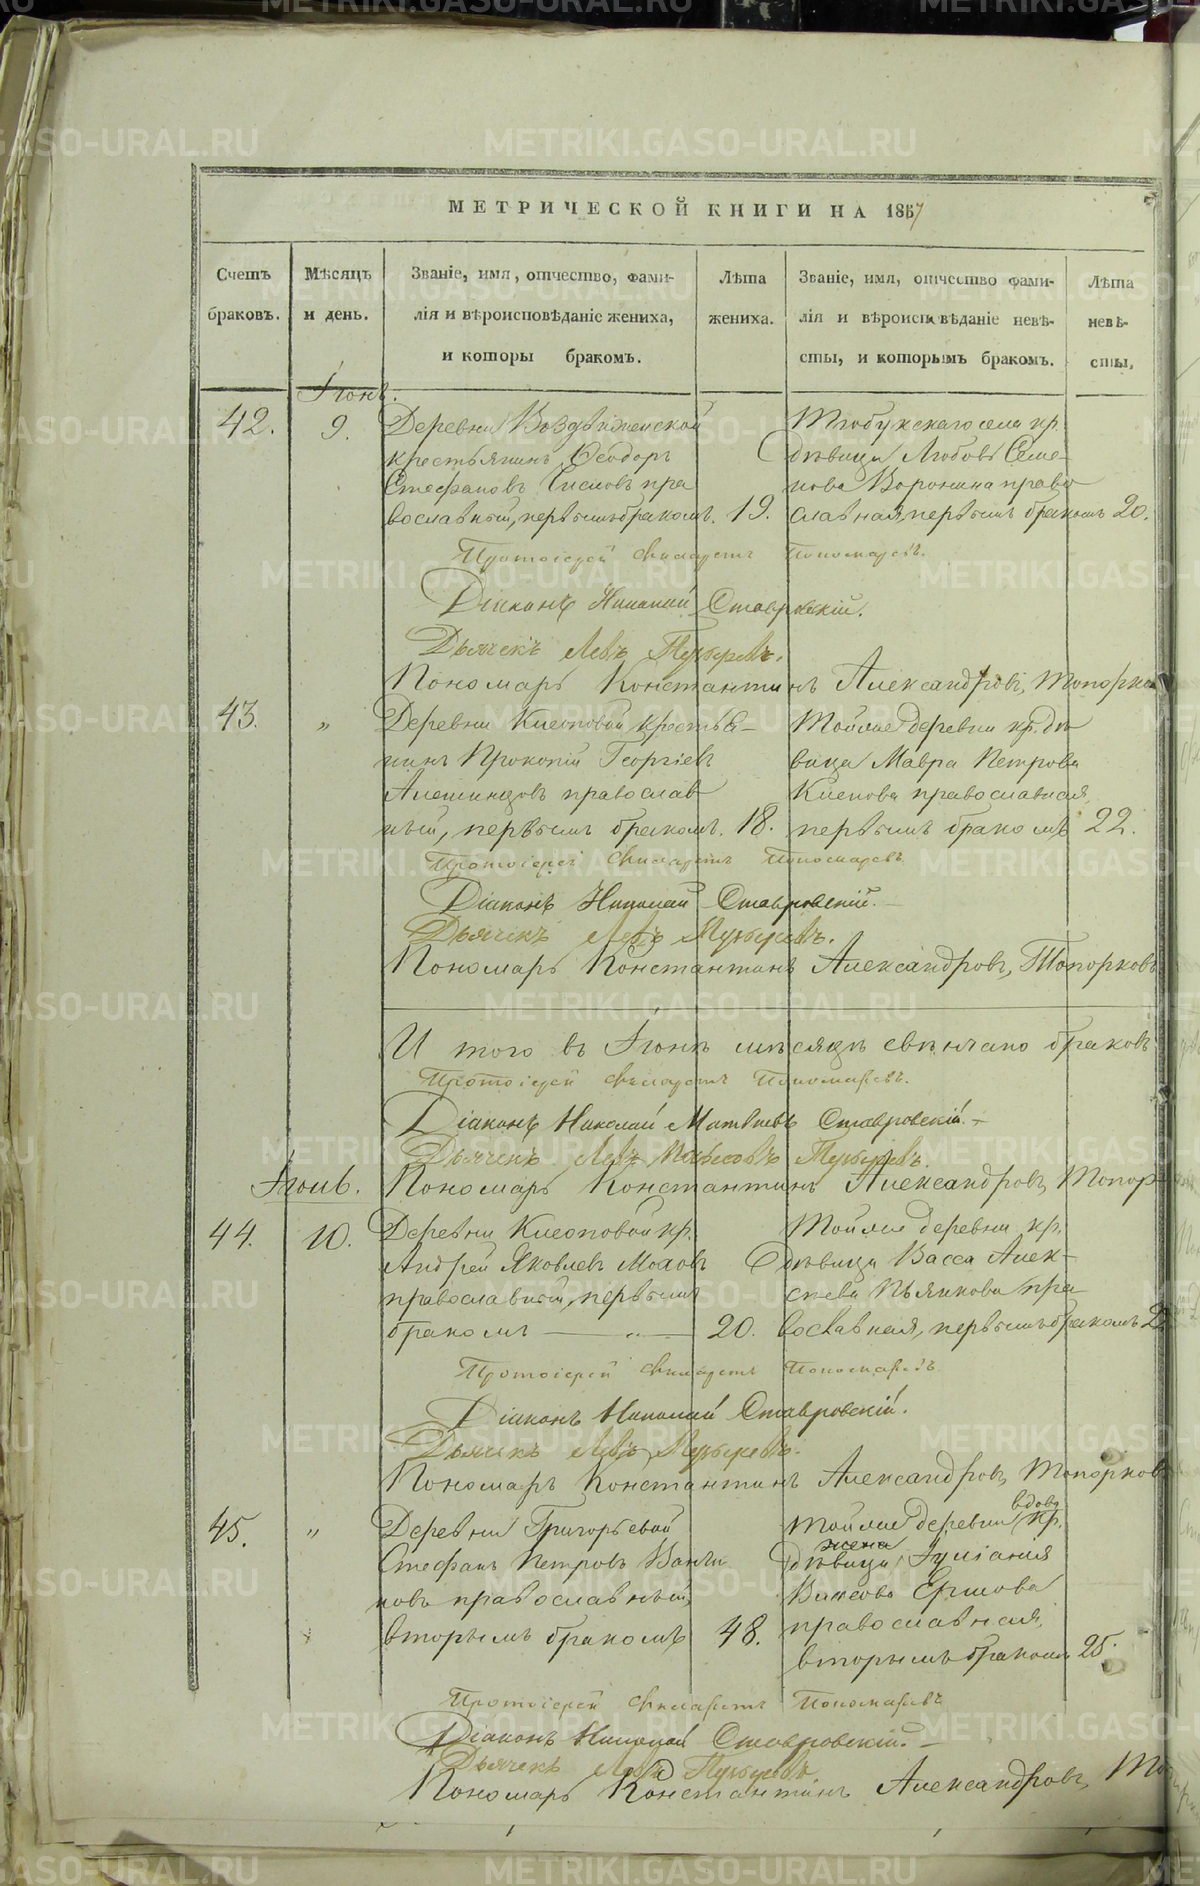 МЕТРИЧЕСКОЙ КНИГИ НА 1867
Счетъ браковъ.
Мѣсяцъ и день.
Званіе, имя, отчество, фами-
лія и вѣроисповѣданіе жениха,
и которы бракомъ.
Лѣта жениха.
Званіе, имя, отчество фами-
лія и вѣроисповѣданіе невѣ-
сты, и которымъ бракомъ.
Лѣта невѣ-
сты,
42. 9.
Деревни Воздвиженской
крестьянинъ Ѳеодоръ
Стефановъ пра
вославный, первымъ бракомъ. 19.
села кр.
дѣвица Любовь Семе-
нова Воронина право
славная, первымъ бракомъ 20.
Протоіерей Филаретъ Пономаревъ.
Діаконъ Николай Ставровскій.
Дьячекъ Левъ Пузыревъ.
Пономарь Константинъ Александровъ, Топорков
43. „
Деревни Клеоповой крестья-
нинъ Прокопій Георгіевъ
Алешинцовъ православ
ный, первымъ бракомъ. 18.
Той же деревни кр. дѣ
вица Мавра Петрова
Клепова православная,
первымъ бракомъ 22.
Протоіерей Филаретъ Пономаревъ
Діаконъ Николай Ставровскій.
Дьячекъ Левъ Пузыревъ.
Пономарь Константинъ Александровъ, Топорковъ
И того въ Іюнѣ мѣсяцѣ свѣнчано браковъ
Протоіерей Филаретъ Пономаревъ.
Діаконъ Николай Матвѣевъ Ставровскій.
Дьячекъ Левъ Пузыревъ.
Пономарь Константинъ Александровъ, Топор-
Іюль.
44. 10.
Деревни Клеоповой кр.
Андрей Яковлевъ Моховъ
православный, первымъ
бракомъ — „ — 20.
Той же деревни кр.
дѣвица Васса Алек-
сѣева Пьянкова пра-
вославная, первымъ бракомъ 2
Протоіерей Филаретъ Пономаревъ
Діаконъ Николай Ставровскій.
Дьячекъ Левъ Пузыревъ.
Пономарь Константинъ Александровъ, Топорков
45. „
Деревни Григорьевой
Стефанъ Петровъ
православный,
вторымъ бракомъ 48.
Той же деревни кр. вдова
дѣвица жена Іуліанія
Ершова
православная,
вторымъ бракомъ 25.
Протоіерей Филаретъ Пономаревъ
Діаконъ Николай Ставровскій.
Дьячекъ Левъ Пузыревъ
Пономарь Константинъ Александровъ, То
METRIKI.GASO-URAL.RU